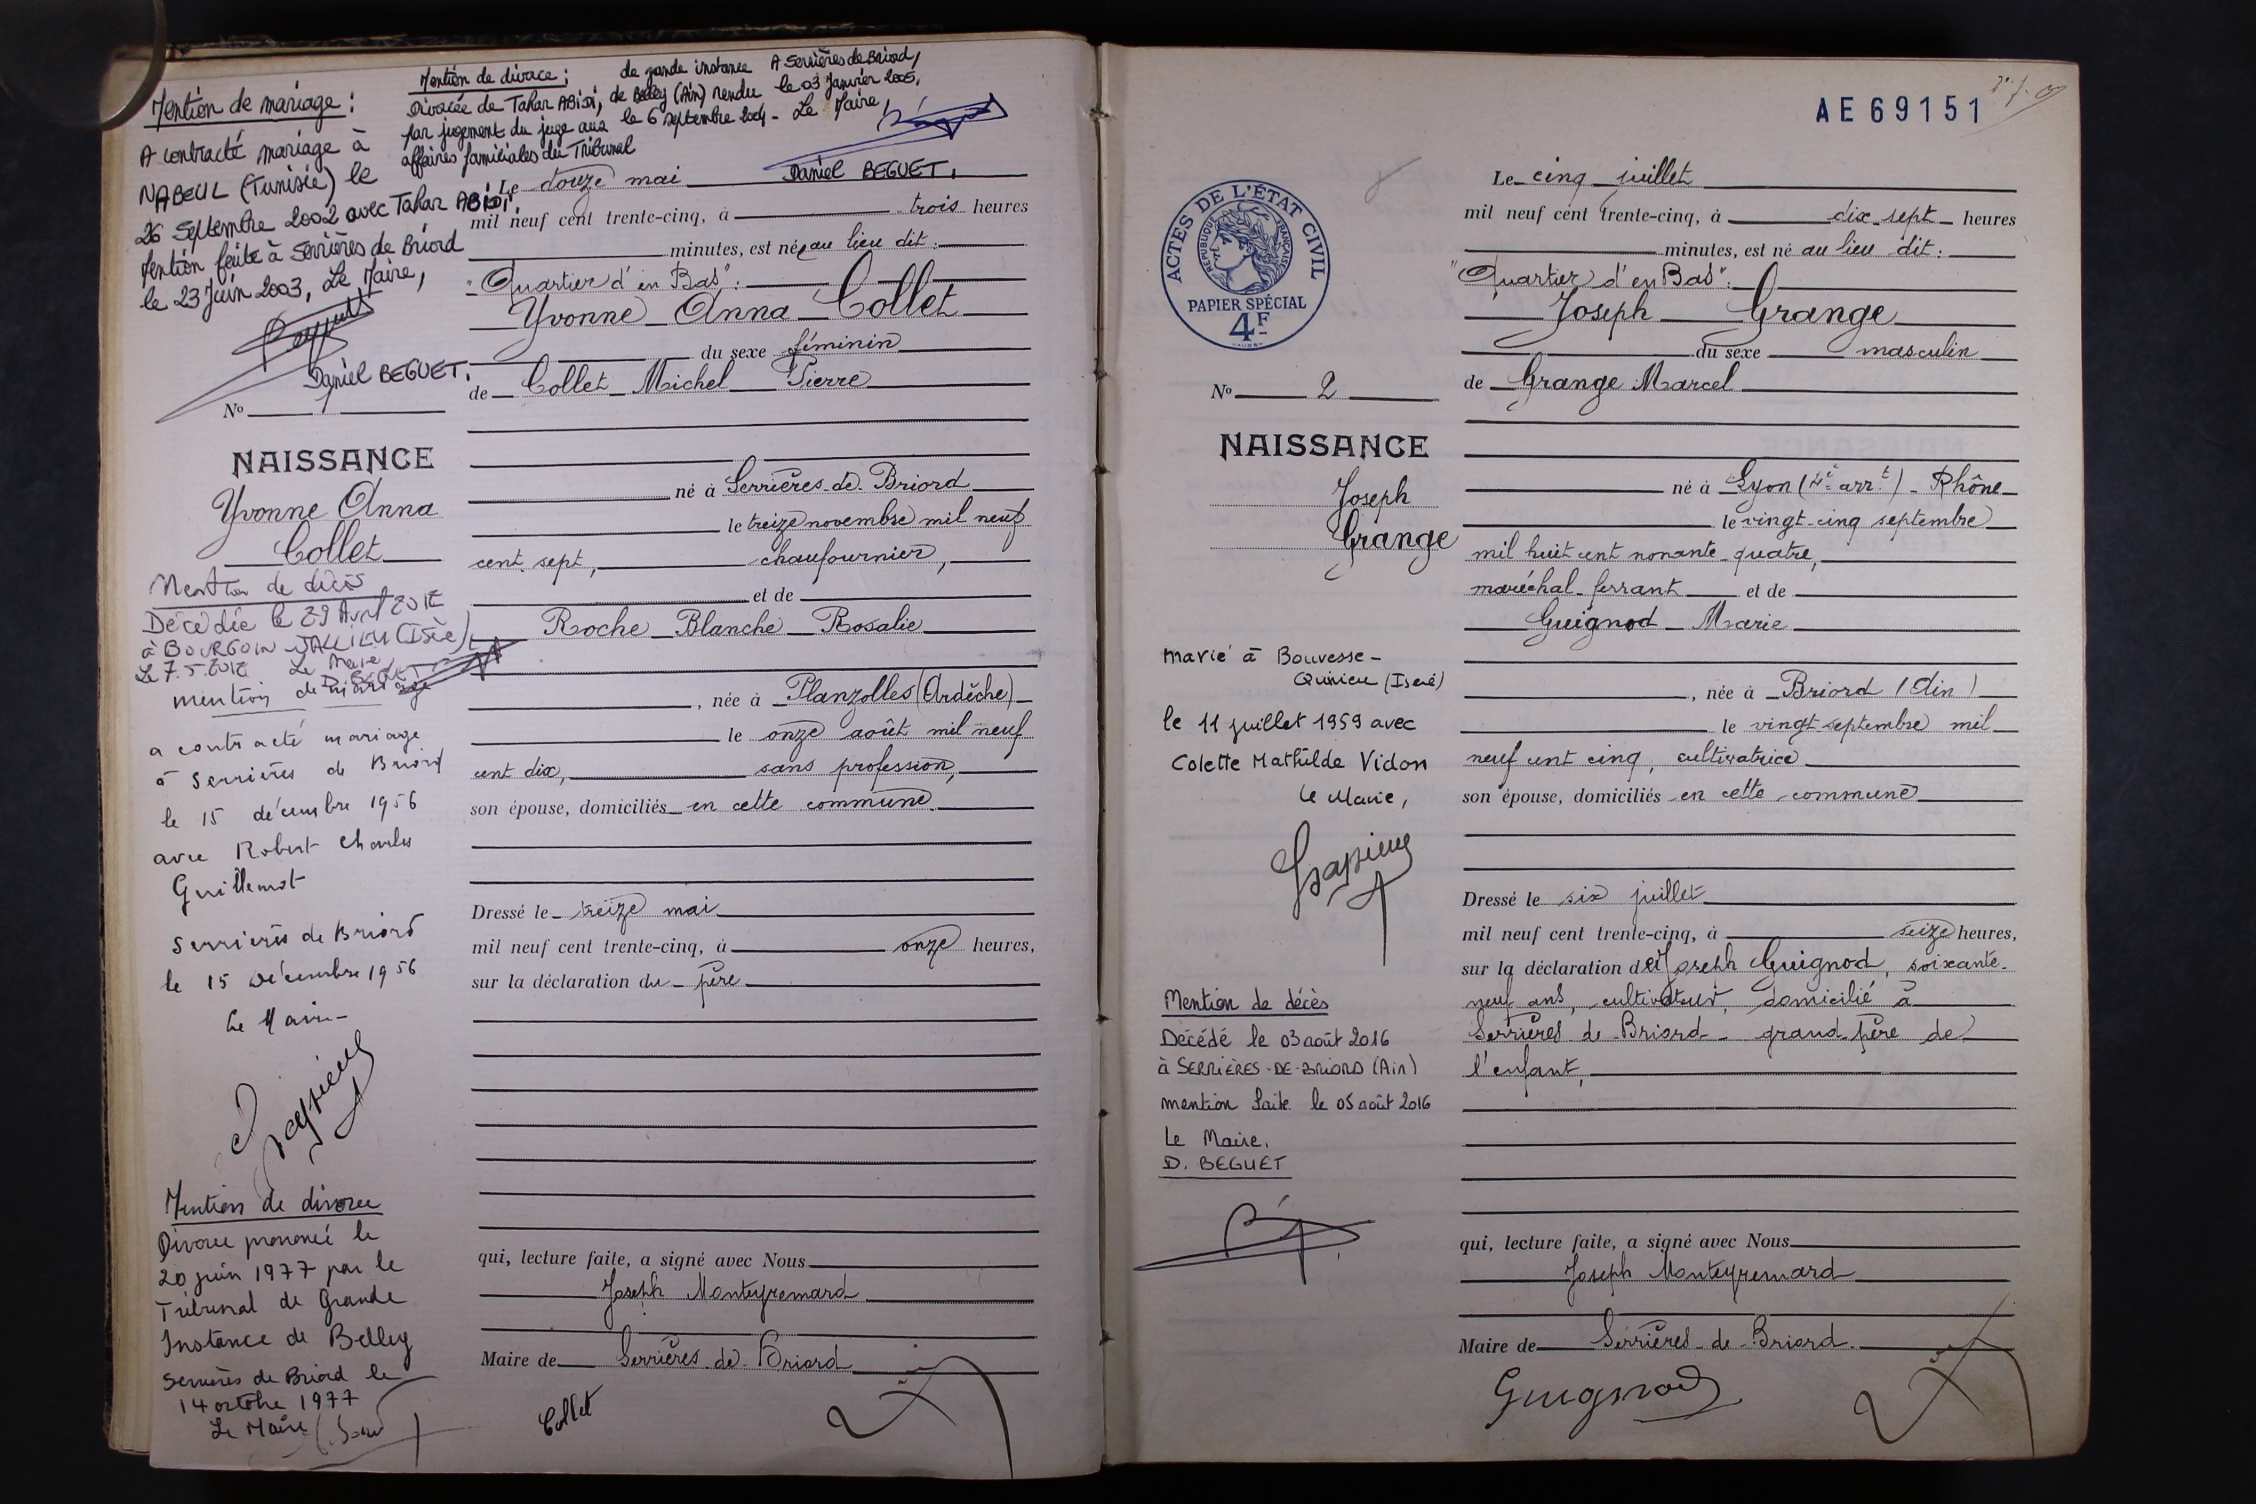 Mention de mariage :
A contracté mariage à
NABEUL (Tunisie) le
26 Septembre 2002 avec Tahar ABIDI,
Mention faite à Serrières de Briord
le 23 Juin 2003, Le Maire,
Daniel BEGUET.
Mention de divorce ;
Divorcée de Tahar ABIDI,
par jugement du juge aux
affaires familiales du Tribunal
de grande instance
de Belley (Ain) rendu
le 6 septembre 2004 -
A Serrières de Briord,
le 03 Janvier 2005,
Le Maire,
Daniel BEGUET.
No 1
NAISSANCE
Yvonne Anna
Collet
Mention de décès
Décédée le 29 Avril 2012
à BOURGOIN JALLIEU (Isère)
Le 7.5.2012 Le Maire
D. BEGUET
mention de mariage
a contracté mariage
à Serrières de Briord
le 15 décembre 1956
avec Robert Charles
Guillemot
Serrières de Briord
le 15 décembre 1956
Le Maire -
Mention de divorce
Divorce prononcé le
20 juin 1977 par le
Tribunal de Grande
Instance de Belley
Serrières de Briord le
14 octobre 1977
Le Maire
Le douze mai
mil neuf cent trente-cinq, à trois heures
minutes, est née au lieu dit :
"Quartier d'en Bas" :
Yvonne Anna Collet
du sexe féminin
de Collet Michel Pierre
né à Serrières-de-Briord
le treize novembre mil neuf
cent sept, chaufournier,
et de
Roche Blanche Rosalie
, née à Planzolles (Ardèche)
le onze août mil neuf
cent dix, sans profession,
son épouse, domiciliés en cette commune.
Dressé le treize mai
mil neuf cent trente-cinq, à onze heures,
sur la déclaration du père
qui, lecture faite, a signé avec Nous
Joseph Monteyremard
Maire de Serrières-de-Briord
Collet
AE69151
ACTES DE L'ÉTAT CIVIL
RÉPUBLIQUE FRANÇAISE
PAPIER SPÉCIAL
4F
No 2
NAISSANCE
Joseph
Grange
marié à Bouvesse-
Quirieu (Isère)
le 11 juillet 1959 avec
Colette Mathilde Vidon
Le Maire,
Mention de décès
Décédé le 03 août 2016
à SERRIÈRES-DE-BRIORD (Ain)
mention faite le 05 août 2016
Le Maire.
D. BEGUET
Le cinq juillet
mil neuf cent trente-cinq, à dix-sept heures
minutes, est né au lieu dit :
"Quartier d'en Bas" :
Joseph Grange
du sexe masculin
de Grange Marcel
né à Lyon (4e arrt) - Rhône
le vingt-cinq septembre
mil huit cent nonante-quatre,
maréchal-ferrant et de
Guignod Marie
, née à Briord (Ain)
le vingt septembre mil
neuf cent cinq, cultivatrice
son épouse, domiciliés en cette commune
Dressé le six juillet
mil neuf cent trente-cinq, à seize heures,
sur la déclaration de Joseph Guignod, soixante-
neuf ans, cultivateur, domicilié à
Serrières de Briord - grand-père de
l'enfant,
qui, lecture faite, a signé avec Nous
Joseph Monteyremard
Maire de Serrières-de-Briord.
Guignod